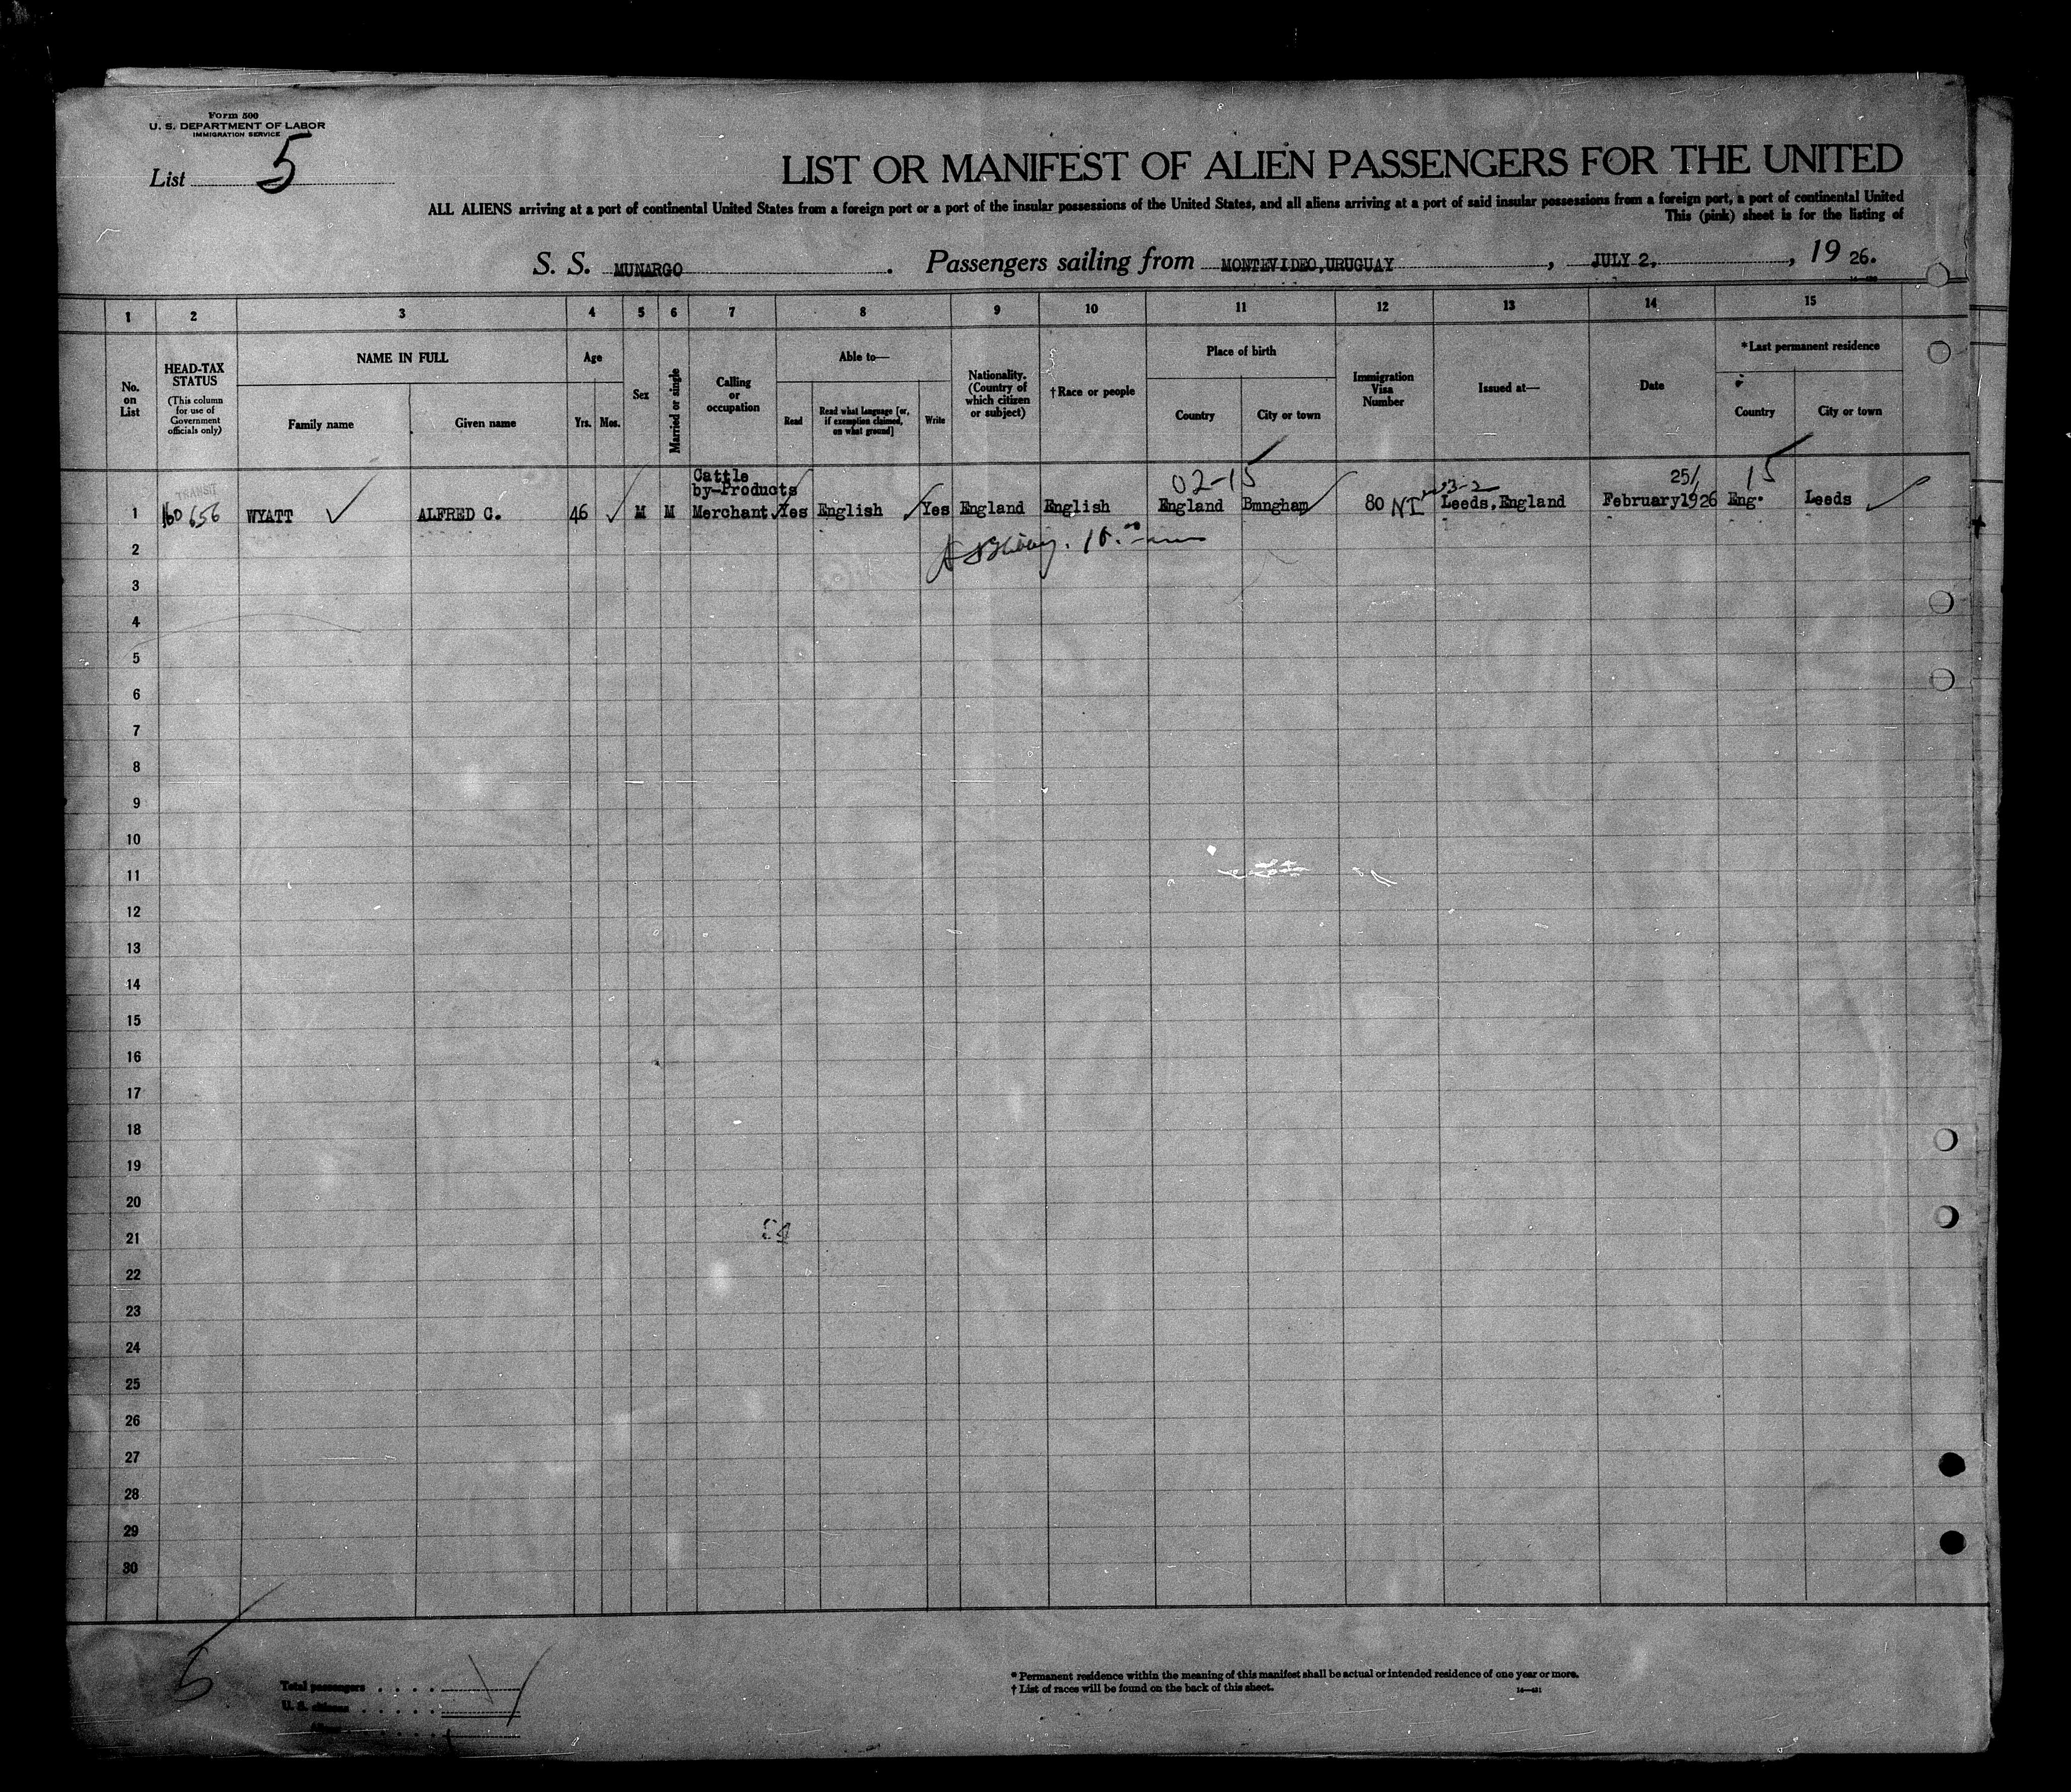 Form 500
U. S. DEPARTMENT OF LABOR
IMMIGRATION SERVICE
List 5
LIST OR MANIFEST OF ALIEN PASSENGERS FOR THE UNITED
ALL ALIENS arriving at a port of continental United States from a foreign port or a port of the insular possessions of the United States, and all aliens arriving at a port of said insular possessions from a foreign port, a port of continental United
This (pink) sheet is for the listing of
S. S. MUNARGO. Passengers sailing from MONTEVIDEO, URUGUAY, JULY 2, , 19 26.
1 2 3 4 5 6 7 8 9 10 11 12 13 14 15
No. on List
HEAD-TAX STATUS (This column for use of Government officials only)
NAME IN FULL
Family name Given name
Age
Yrs. Mos.
Sex
Married or single
Calling or occupation
Able to—
Read Read what language [or, if exemption claimed, on what ground] Write
Nationality. (Country of which citizen or subject)
†Race or people
Place of birth
Country City or town
Immigration Visa Number
Issued at—
Date
*Last permanent residence
Country City or town
TRANSIT
Cattle
by-Products
02-15
3-2
25/
15
1 160656 WYATT ALFRED C. 46 M M Merchant Yes English Yes England English England Bmngham 80 NI Leeds, England February 1926 Eng. Leeds
2
3
4
5
6
7
8
9
10
11
12
13
14
15
16
17
18
19
20
21
22
23
24
25
26
27
28
29
30
5
Total passengers
U. S. citizens
Aliens
* Permanent residence within the meaning of this manifest shall be actual or intended residence of one year or more.
† List of races will be found on the back of this sheet.